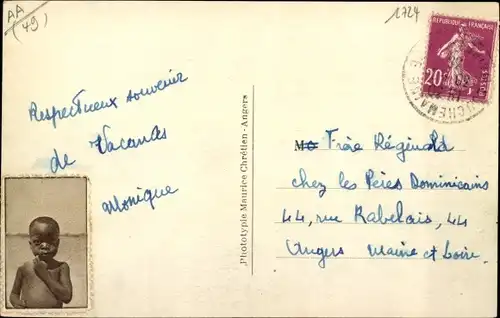 AA
(49)
1724
REPUBLIQUE FRANÇAISE
20c
Respectueux souvenir
de Vacances
Monique
Phototypie Maurice Chrétien - Angers
M Frère Réginald
chez les Pères Dominicains
44, rue Rabelais, 44
Angers Maine et Loire.